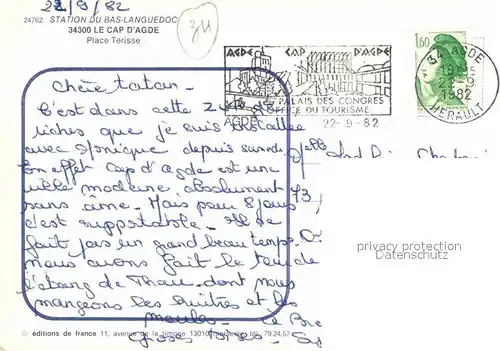 22/9/82
24762 STATION DU BAS-LANGUEDOC
34300 LE CAP D'AGDE
Place Terisse
34
AGDE CAP D'AGDE
PALAIS DES CONGRES
OFFICE DU TOURISME
AGDE
22-9-82
1,60
34 AGDE
1982
HERAULT
Chère tatan -
C'est dans cette
riches que je suis installée
avec Monique depuis samedi
En effet Cap d'agde est une
ville moderne absolument
sans âme. Mais pour 8 jours
c'est supportable. Il ne
fait pas un grand beau temps.
nous avons fait le tour de
l'étang de Thau dont nous
mangeons les huîtres et les
moules -
Grosses bises -
73
privacy protection
© éditions de france 11, avenue de la timone 13010 marseille tél. 79.24.57